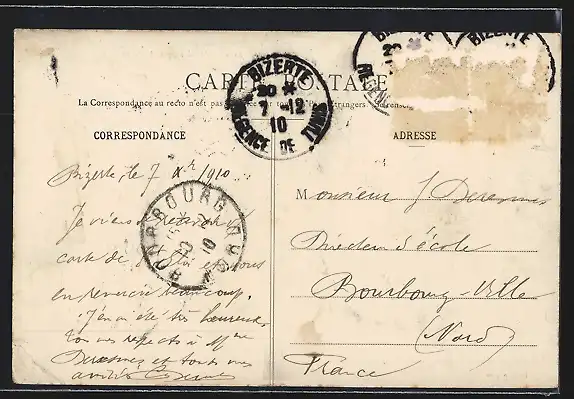 CARTE POSTALE
La Correspondance au recto n'est pas
CORRESPONDANCE
ADRESSE
BIZERTE
20 *
7 - 12
10
REGENCE DE TUNIS
BIZERTE
BIZERTE
BOURBOURG NORD
10
Bizerte, le 7 Xbre 1910
Je viens de recevoir la
carte de et vous
en remercie beaucoup.
J'en ai été très heureux
mes respects à Mme
et toutes mes
amitiés
Monsieur J.
Directeur d'école
Bourbourg-Ville
(Nord)
France